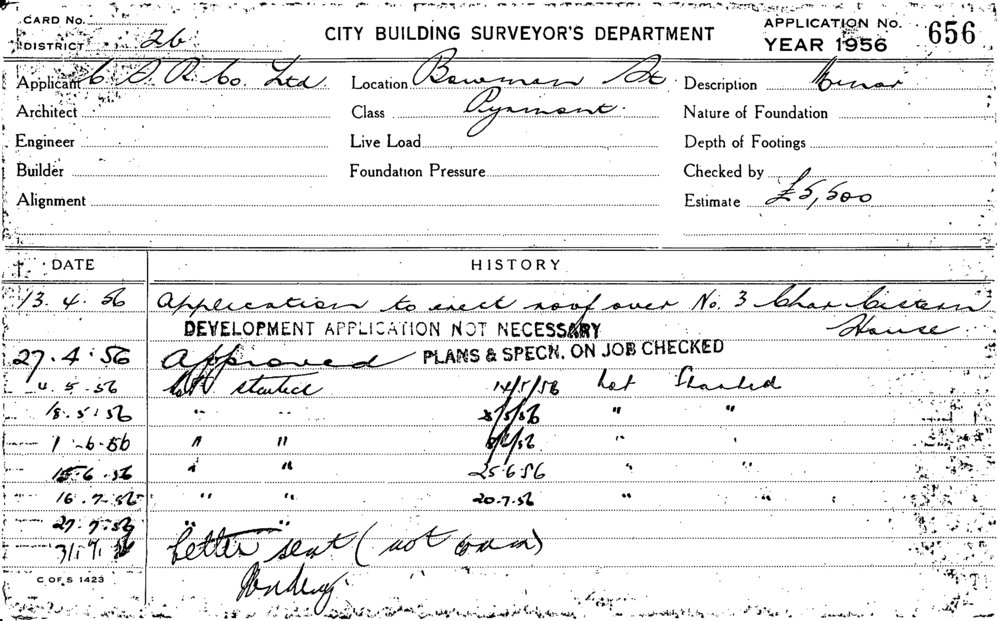 CARD No.
DISTRICT 26
CITY BUILDING SURVEYOR'S DEPARTMENT
APPLICATION No. 656
YEAR 1956
Applicant C. S. R. Co. Ltd Location Bowman St. Description Minor
Architect Class Pyrmont. Nature of Foundation
Engineer Live Load Depth of Footings
Builder Foundation Pressure Checked by
Alignment Estimate £5,500
DATE HISTORY
13. 4. 56 Application to erect roof over No. 3 Char Cistern
House
DEVELOPMENT APPLICATION NOT NECESSARY
27. 4. 56 Approved PLANS & SPECN. ON JOB CHECKED
4. 5. 56 Not started 14/5/56 Not Started
18. 5. 56 " " /5/56 " "
1 - 6. 56 " " /56 " "
15. 6. 56 " " 25.6.56 " "
16. 7. 56 " " 20.7.56 " "
27. 7. 56 " "
31. 7. 56 Letter sent (not com)
C OF S 1423